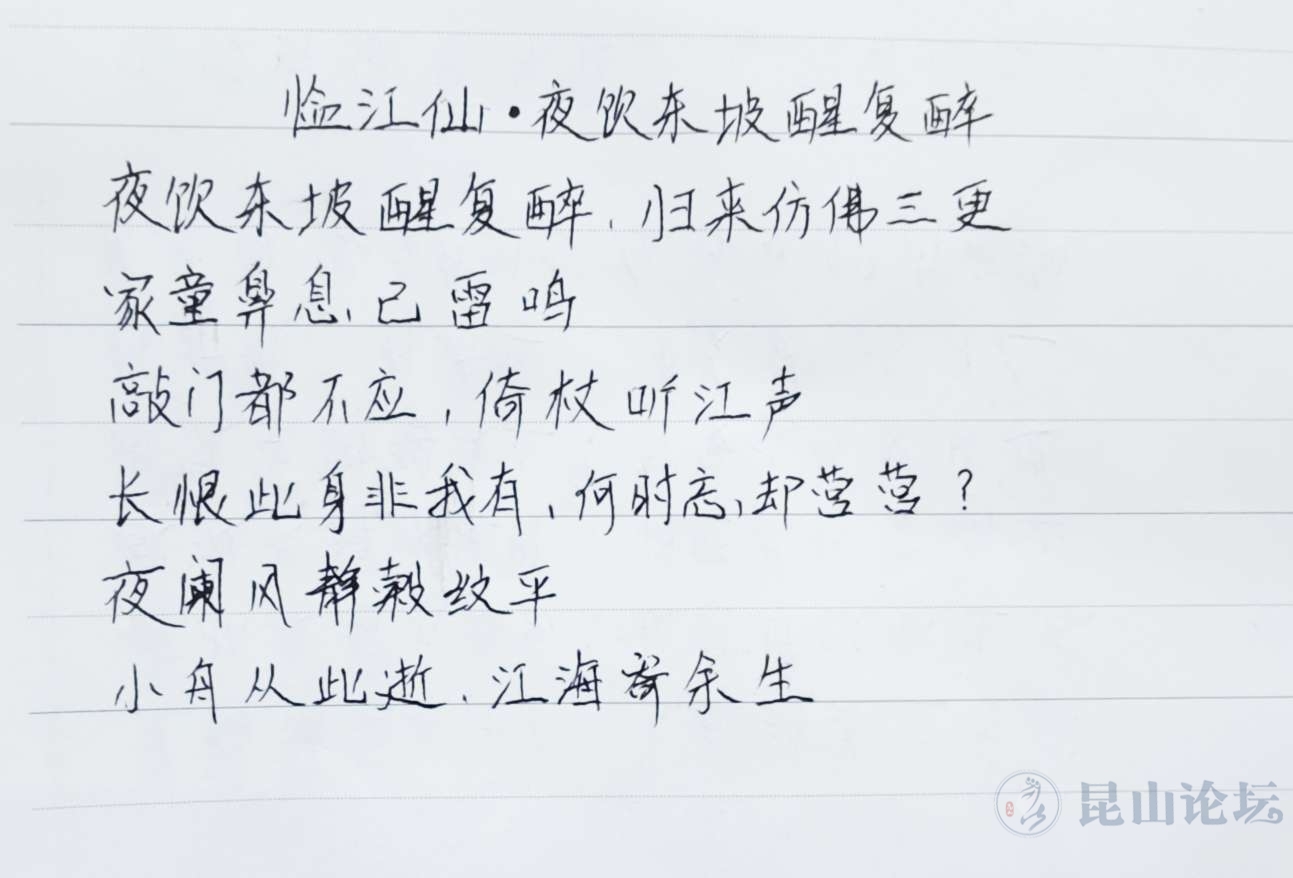 临江仙·夜饮东坡醒复醉
夜饮东坡醒复醉,归来仿佛三更
家童鼻息已雷鸣
敲门都不应,倚杖听江声
长恨此身非我有,何时忘却营营?
夜阑风静縠纹平
小舟从此逝,江海寄余生
昆山论坛